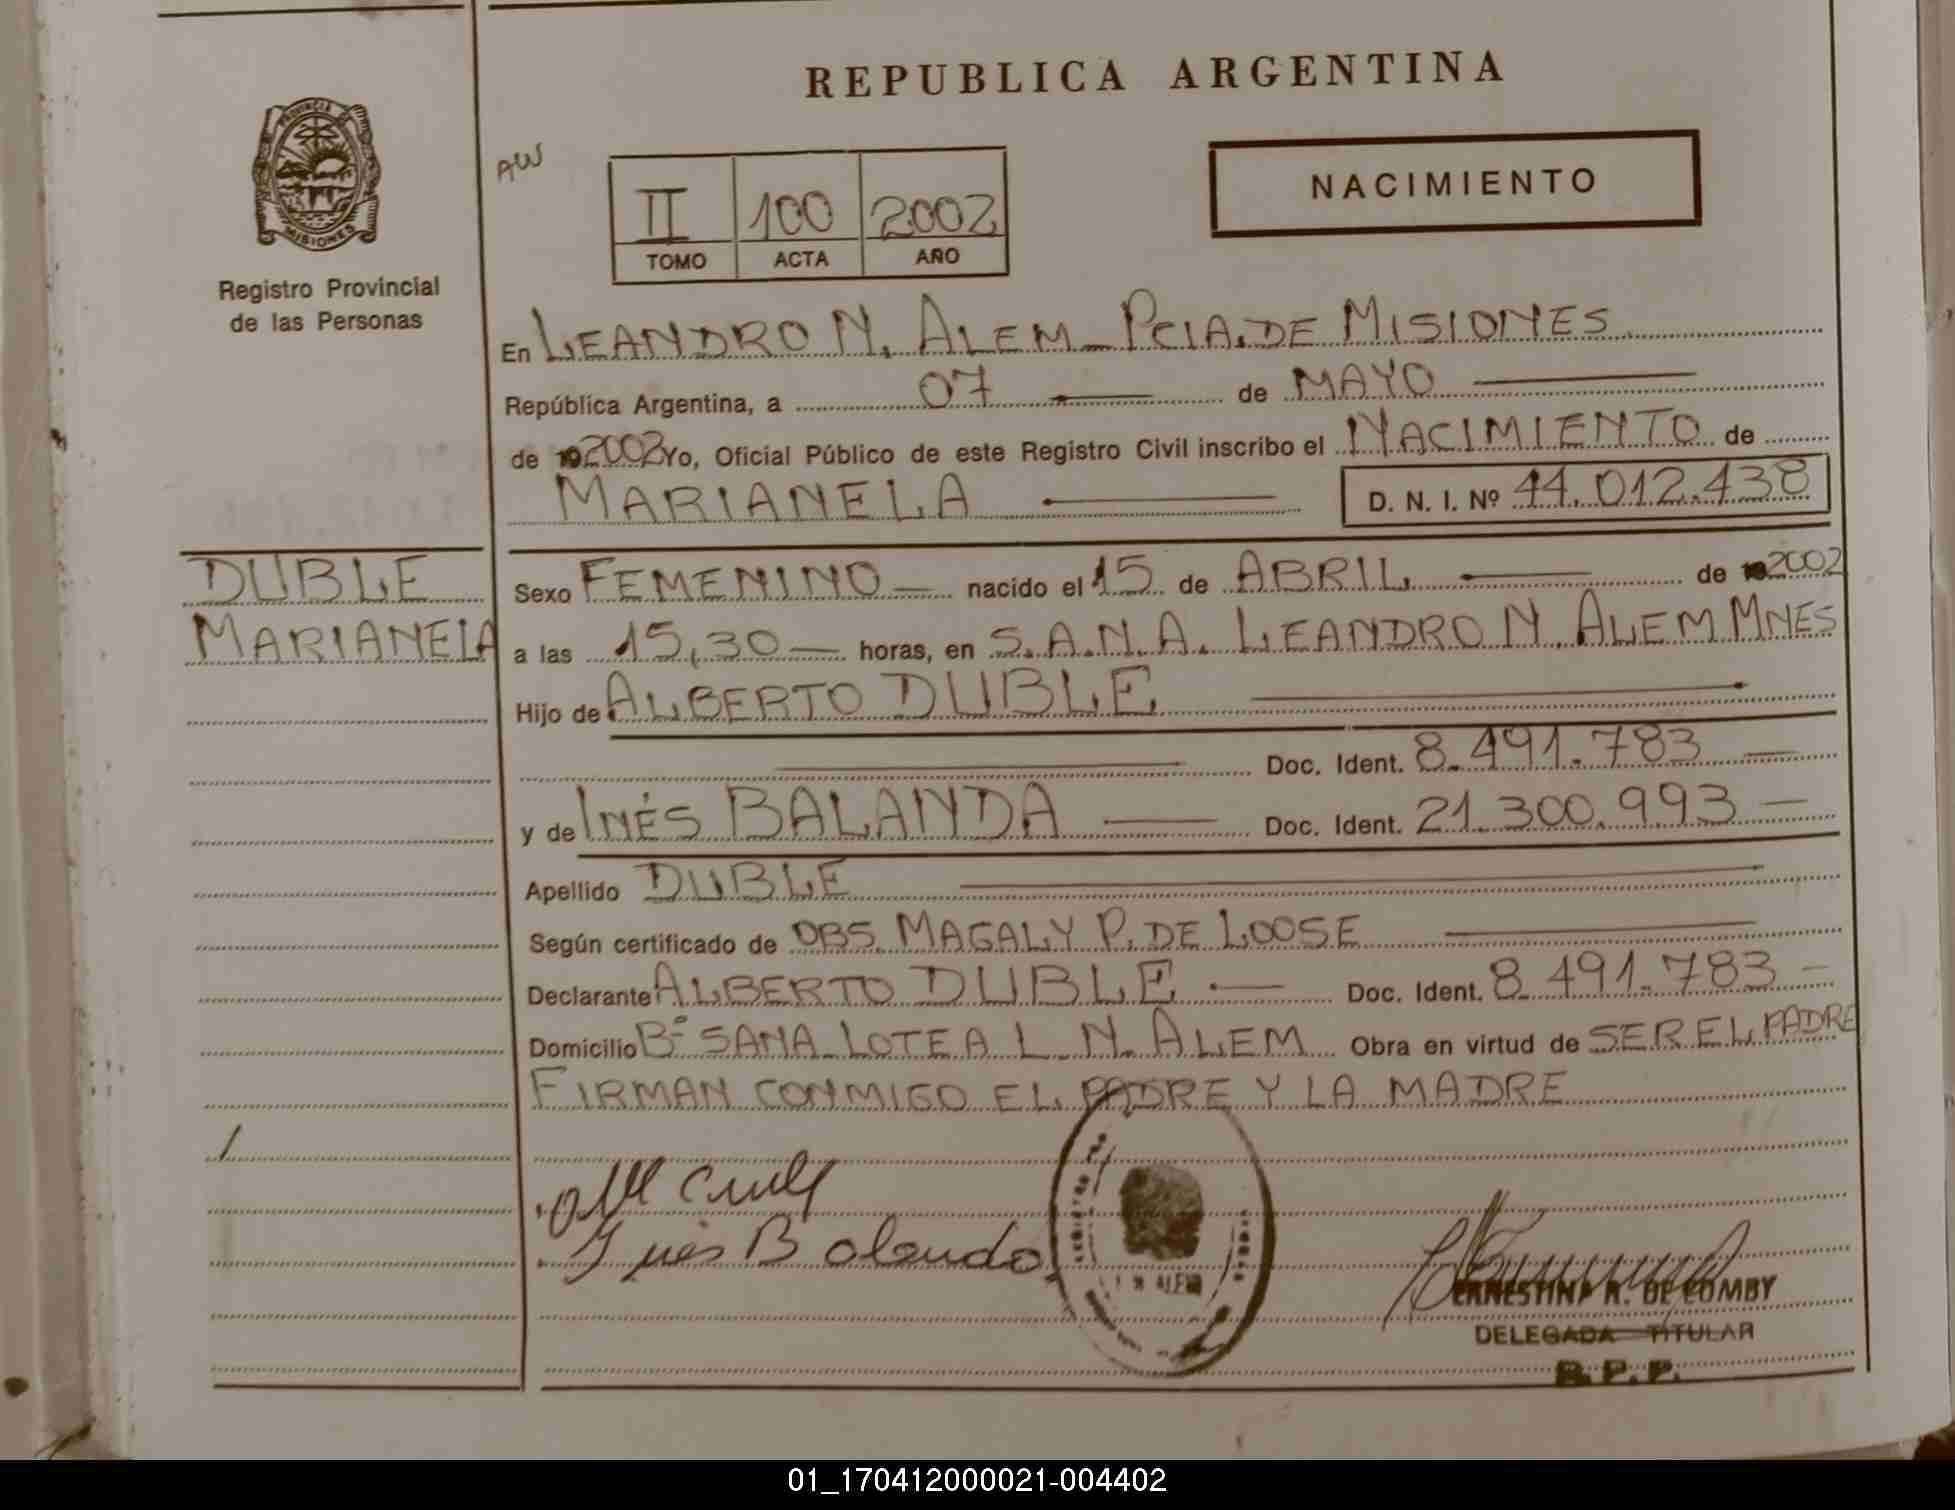 REPUBLICA ARGENTINA
PROVINCIA DE
MISIONES
Registro Provincial
de las Personas
AW
II 100 2002
TOMO ACTA AÑO
NACIMIENTO
En LEANDRO N. ALEM - PCIA. DE MISIONES
República Argentina, a 07 — de MAYO —
de 192002 Yo, Oficial Público de este Registro Civil inscribo el NACIMIENTO de
MARIANELA — D. N. I. Nº 44.012.438
DUBLE
MARIANELA
Sexo FEMENINO — nacido el 15 de ABRIL — de 192002
a las 15,30 — horas, en S.A.N.A. LEANDRO N. ALEM MNES
Hijo de ALBERTO DUBLE —
— Doc. Ident. 8.491.783 —
y de INÉS BALANDA — Doc. Ident. 21.300.993 —
Apellido DUBLE —
Según certificado de OBS. MAGALY P. DE LOOSE —
Declarante ALBERTO DUBLE — Doc. Ident. 8.491.783 —
Domicilio Bº SANA LOTE A L. N. ALEM Obra en virtud de SER EL PADRE
FIRMAN CONMIGO EL PADRE Y LA MADRE
Inés Balanda
L. N. ALEM
ERNESTINA R. DE LOMBY
DELEGADA TITULAR
R. P. P.
01_170412000021-004402